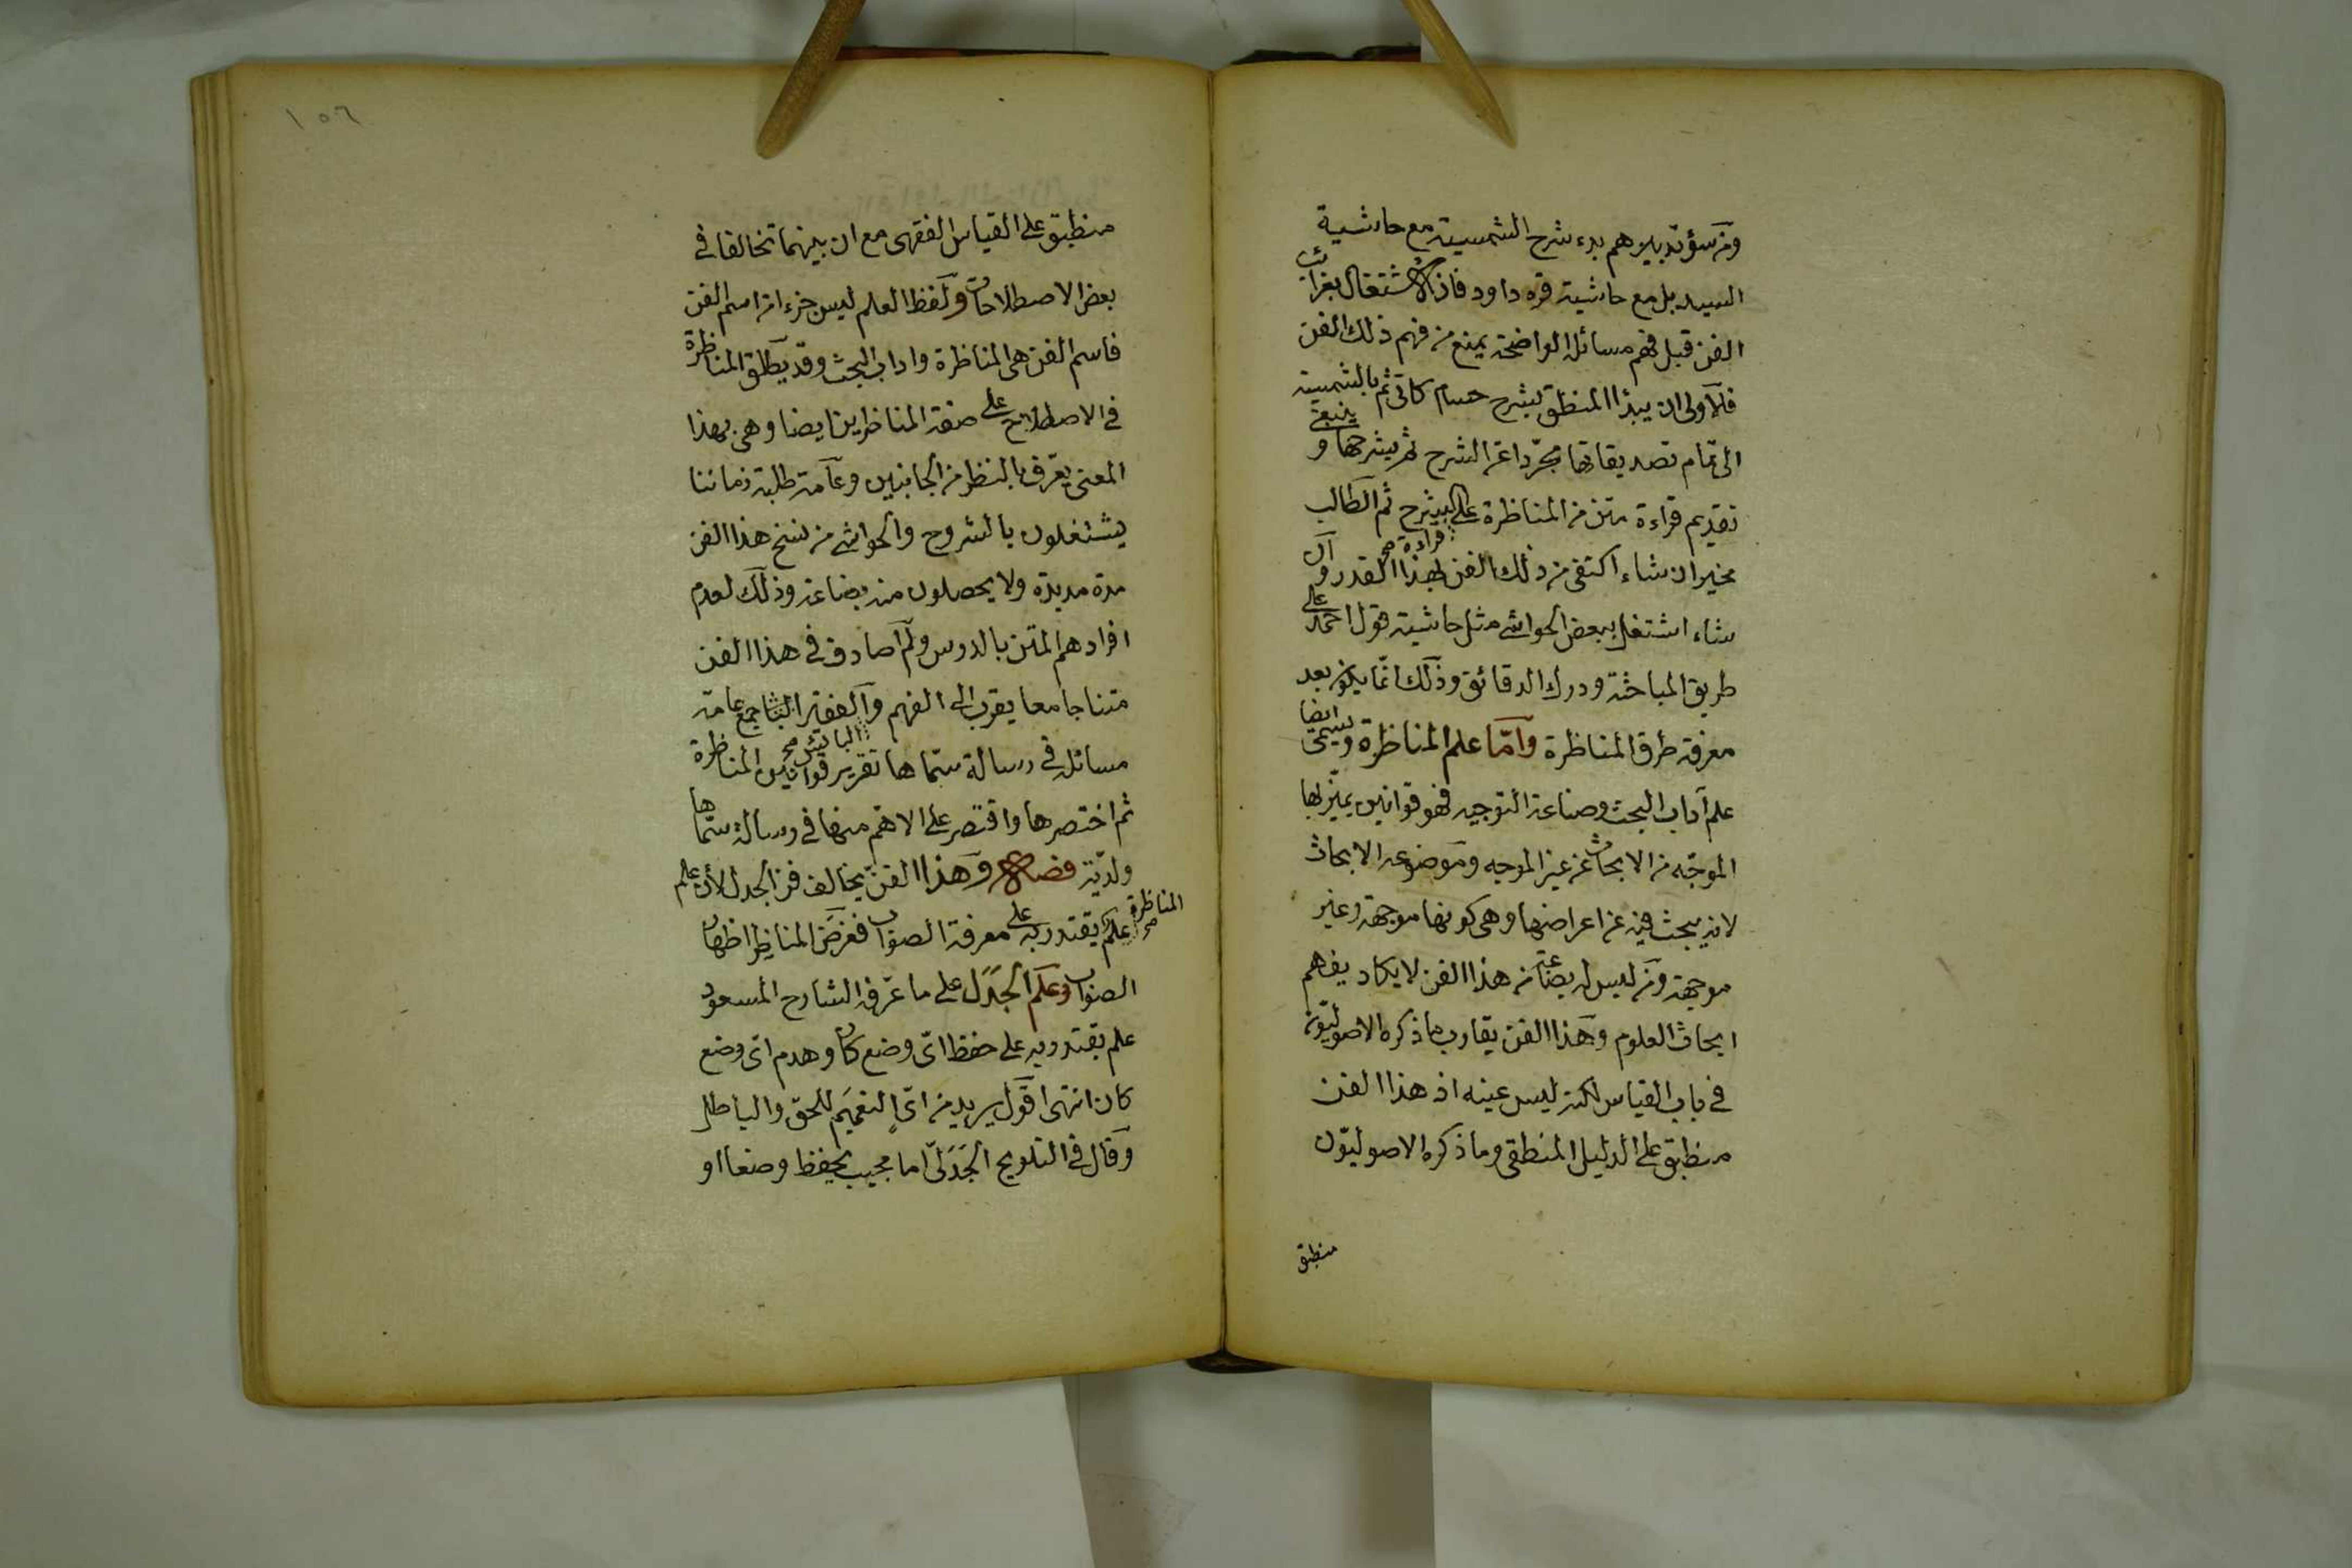 ومن سوء تدبيرهم بدء شرح الشمسية مع حاشية
السيد بل مع حاشية قره داود فان الاشتغال بغرائب
الفن قبل فهم مسائله الواضحة يمنع من فهم ذلك الفن
فالاولى ان يبدأ المنطق بشرح حسام كاتى ثم بالشمسية
الى تمام تصديقاتها مجردا عن الشرح ثم بشرحها وينبغى
تقديم قراءة متن من المناظرة على الشرح ثم الطالب
قراءة صح
مخير ان شاء اكتفى من ذلك الفن بهذا القدر وان
شاء اشتغل ببعض الحواشى مثل حاشية قول احمد على
طريق المباحثة ودرك الدقائق وذلك انما يكون بعد
معرفة طرق المناظرة وأما علم المناظرة ويسمى ايضا
علم آداب البحث وصناعة التوجيه فهو قوانين يميز بها
الموجه من الابحاث عن غير الموجه وموضوعه الابحاث
لانه يبحث فيه عن اعراضها وهى كونها موجهة وغير
موجهة ومن ليس له بضاعة من هذا الفن لا يكاد يفهم
ابحاث العلوم وهذا الفن يقارب ما ذكره الاصوليون
فى باب القياس لكنه ليس عينه اذ هذا الفن
منطبق على الدليل المنطقى وما ذكره الاصوليون
منطبق
١٥٦
منطبق على القياس الفقهى مع ان بينهما تخالفا فى
بعض الاصطلاحات ولفظ العلم ليس جزءا من اسم الفن
فاسم الفن هى المناظرة واداب البحث وقد يطلق المناظرة
فى الاصطلاح على صفة المناظرين ايضا وهى بهذا
المعنى يعرف بالنظر من الجانبين وعامة طلبة زماننا
يشتغلون بالشروح والحواشى من نسخ هذا الفن
مدة مديدة ولا يحصلون منه بضاعة وذلك لعدم
افرادهم المتن بالدرس ولم اصادف فى هذا الفن
متنا جامعا يقرب الى الفهم والفقير جمع عامة
البائس صح
مسائله فى رسالة سماها تقرير قوانين المناظرة
ثم اختصرها واقتصر على الاهم منها فى رسالة سماها
ولدية فصل وهذا الفن يخالف فن الجدل لأن علم
المناظرة صح
علم يقتدر به على معرفة الصواب فغرض المناظر اظهار
الصواب وعلم الجدل على ما عرفه الشارح المسعود
علم يقتدر به على حفظ اى وضع كان وهدم اى وضع
كان انتهى اقول يريد من اى التعميم للحق والباطل
وقال فى التلويح الجدلى اما مجيب يحفظ وضعا او